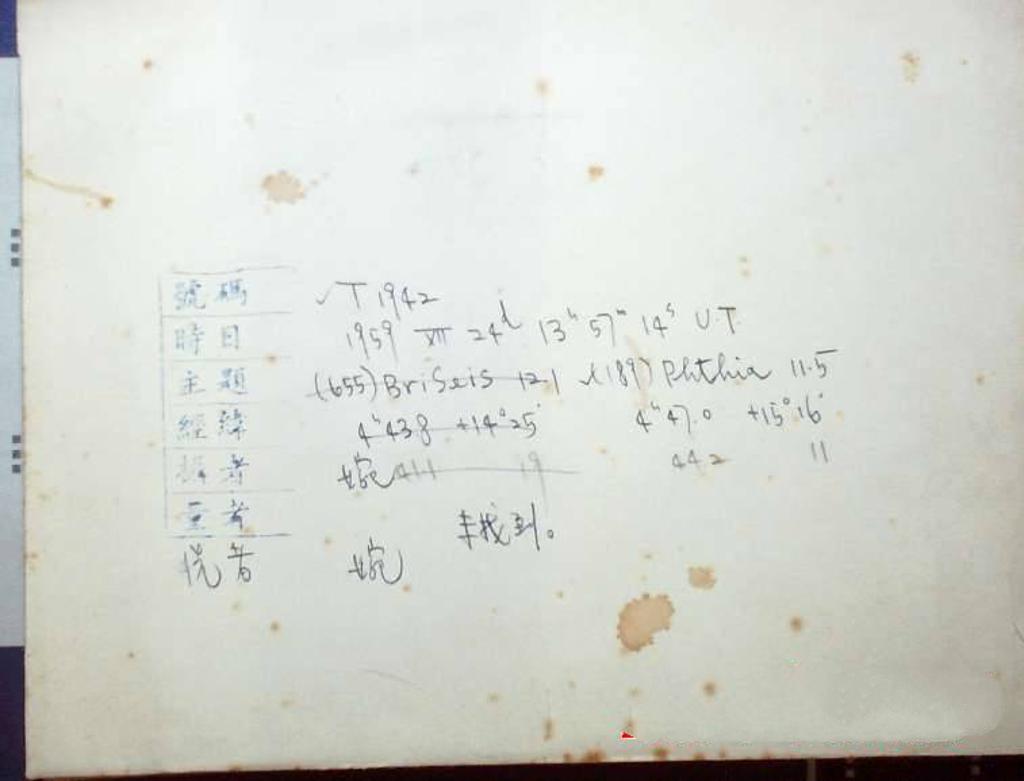 號碼 √T 1942
時日 1959 VII 24d 13h 57m 14s U.T.
主題 (655) Briseis 12.1 √(189) Phthia 11.5
經緯 4h43.8 +14°25' 4h47.0 +15°16'
攝者 婉 411 19 44.2 11
量者 未找到。
婉